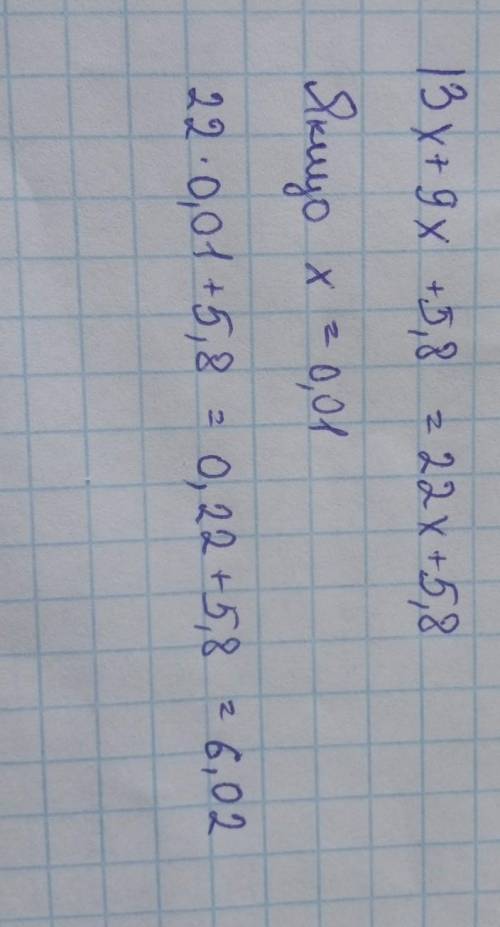 13x+9x+5,8 = 22x+5,8
Якщо x = 0,01
22·0,01+5,8 = 0,22+5,8 = 6,02